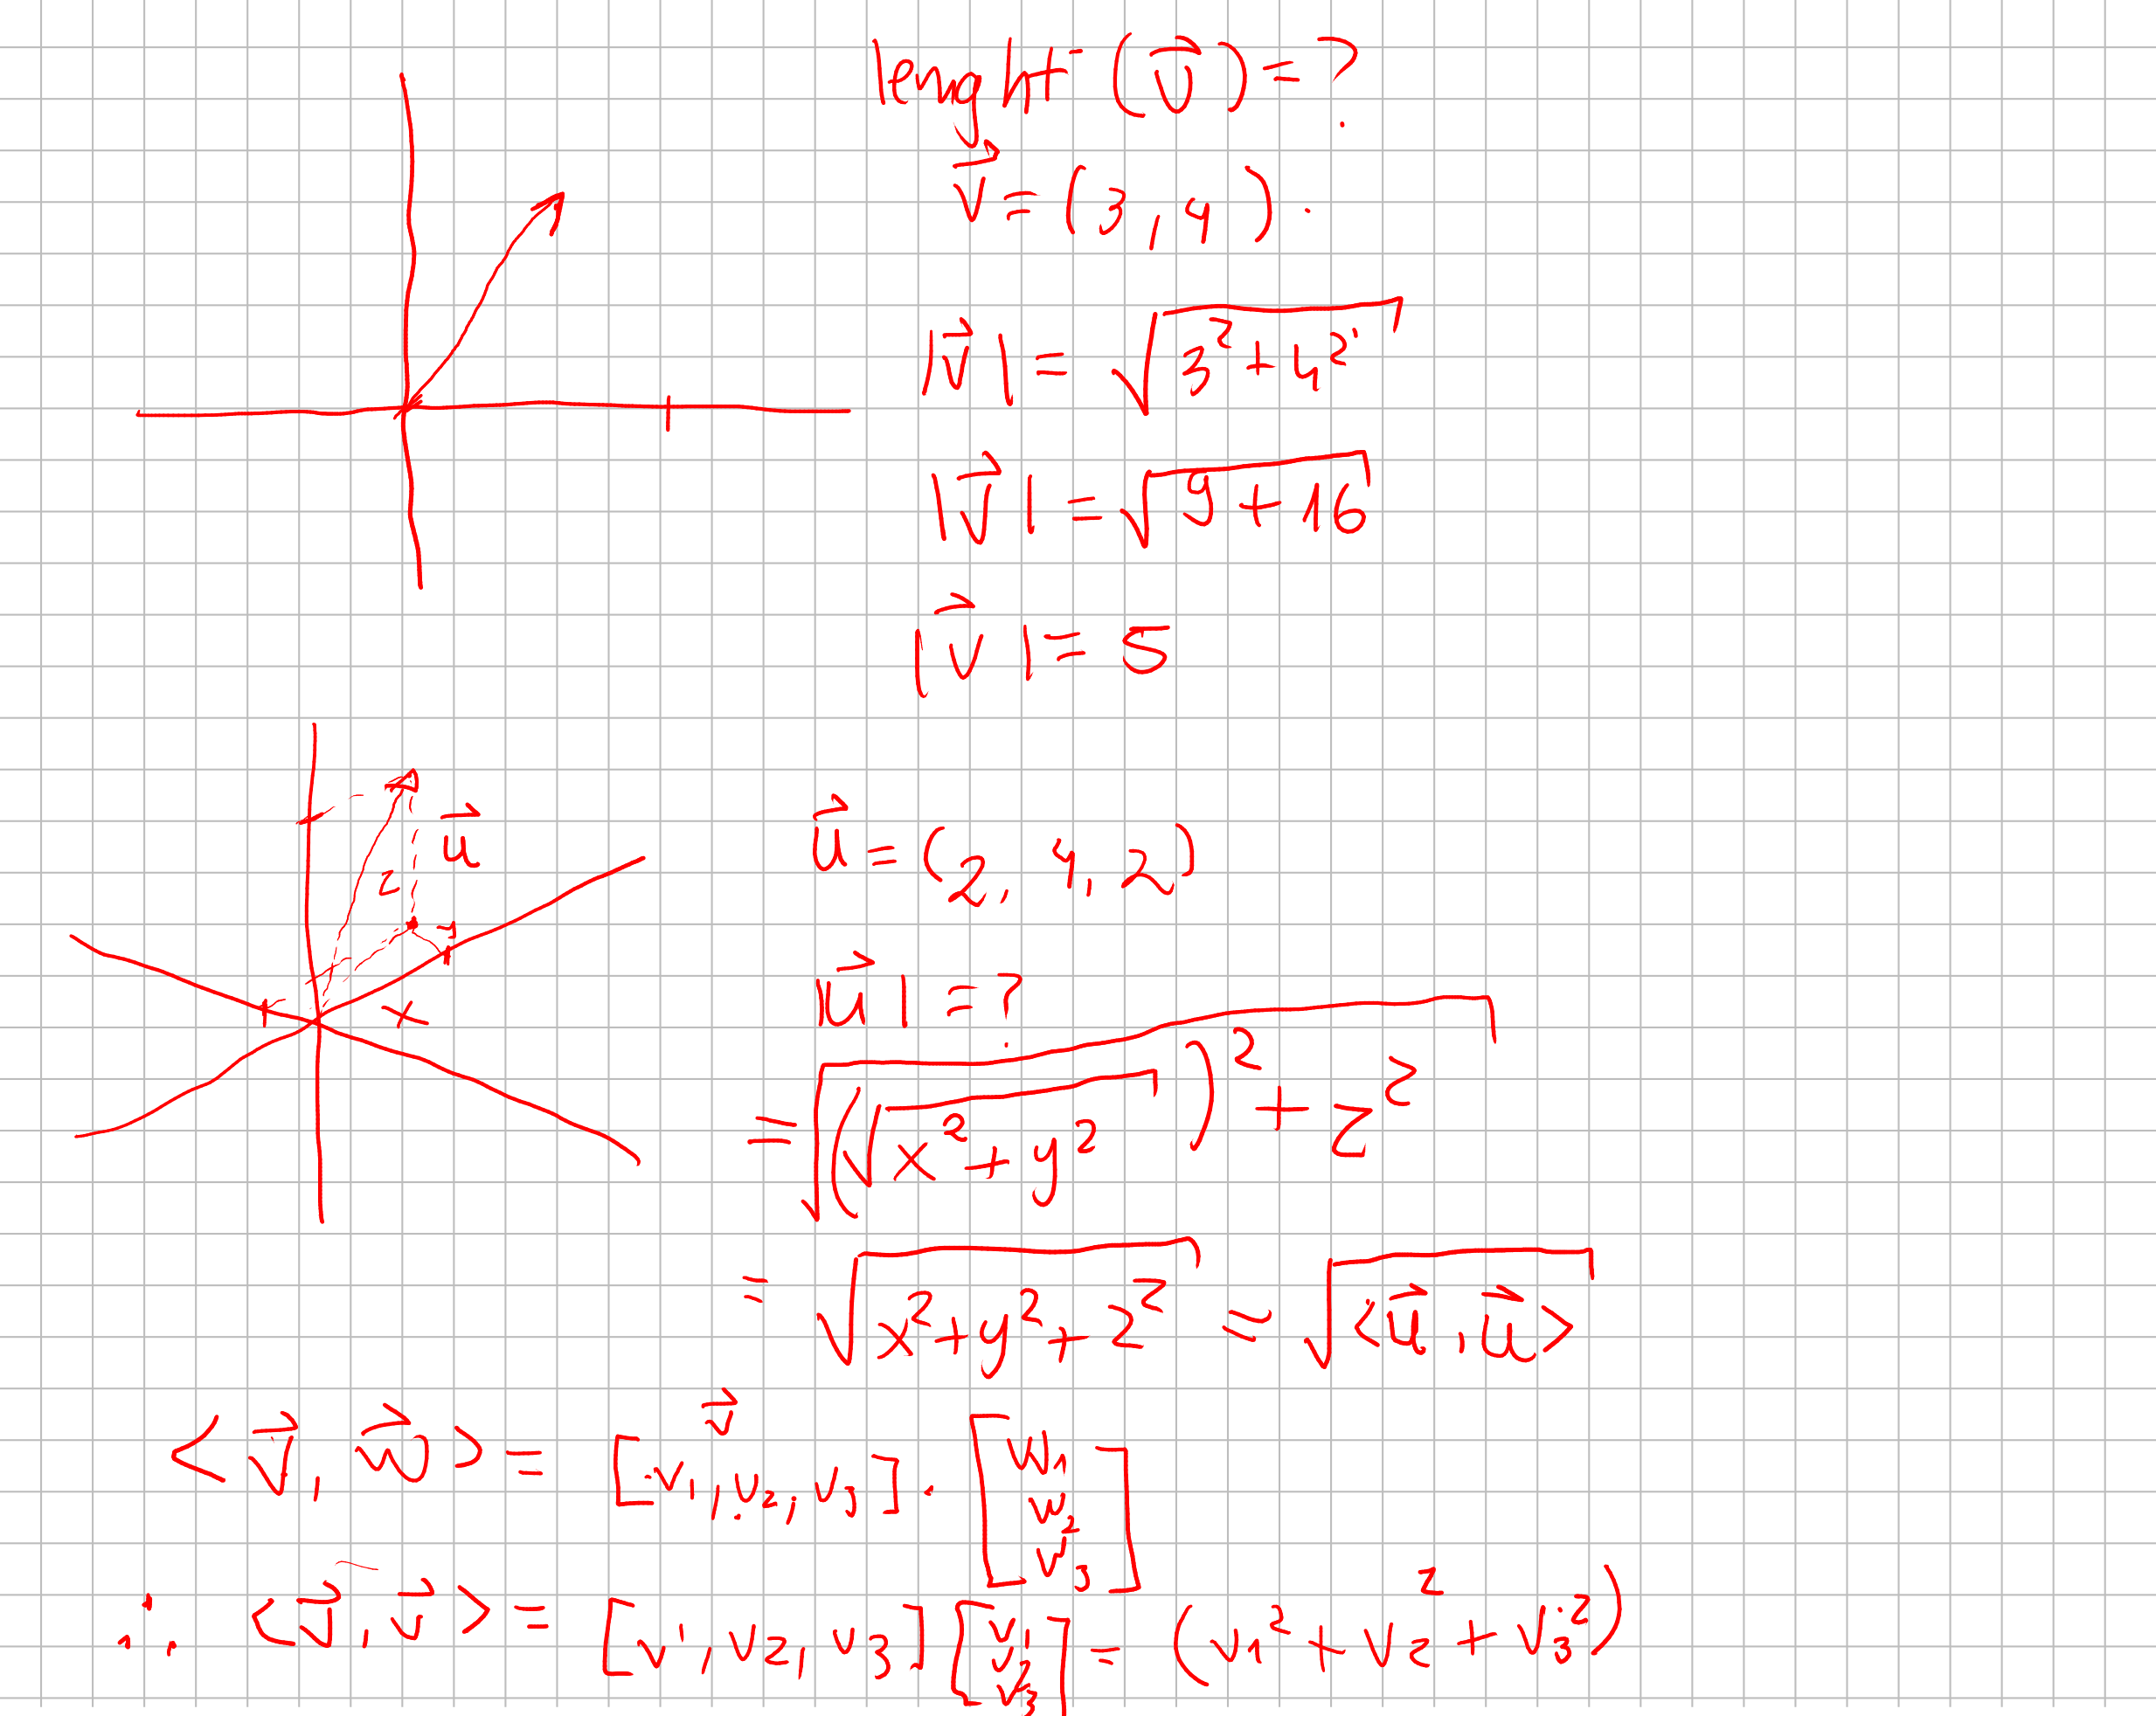 lenght (v⃗) = ?
v⃗ = (3, 4).
|v⃗| = √(3² + 4²)
|v⃗| = √(9 + 16)
|v⃗| = 5
u⃗
z
y
x
u⃗ = (2, 4, 2)
|u⃗| = ?
= √((√(x² + y²))² + z²)
= √(x² + y² + z²) = √<u⃗, u⃗>
v⃗
<v⃗, w⃗> = [v₁, v₂, v₃] · [w₁ w₂ w₃]
∴ <v⃗, v⃗> = [v1, v2, v3] [v1 v2 v3] = (v1² + v2² + v3²)